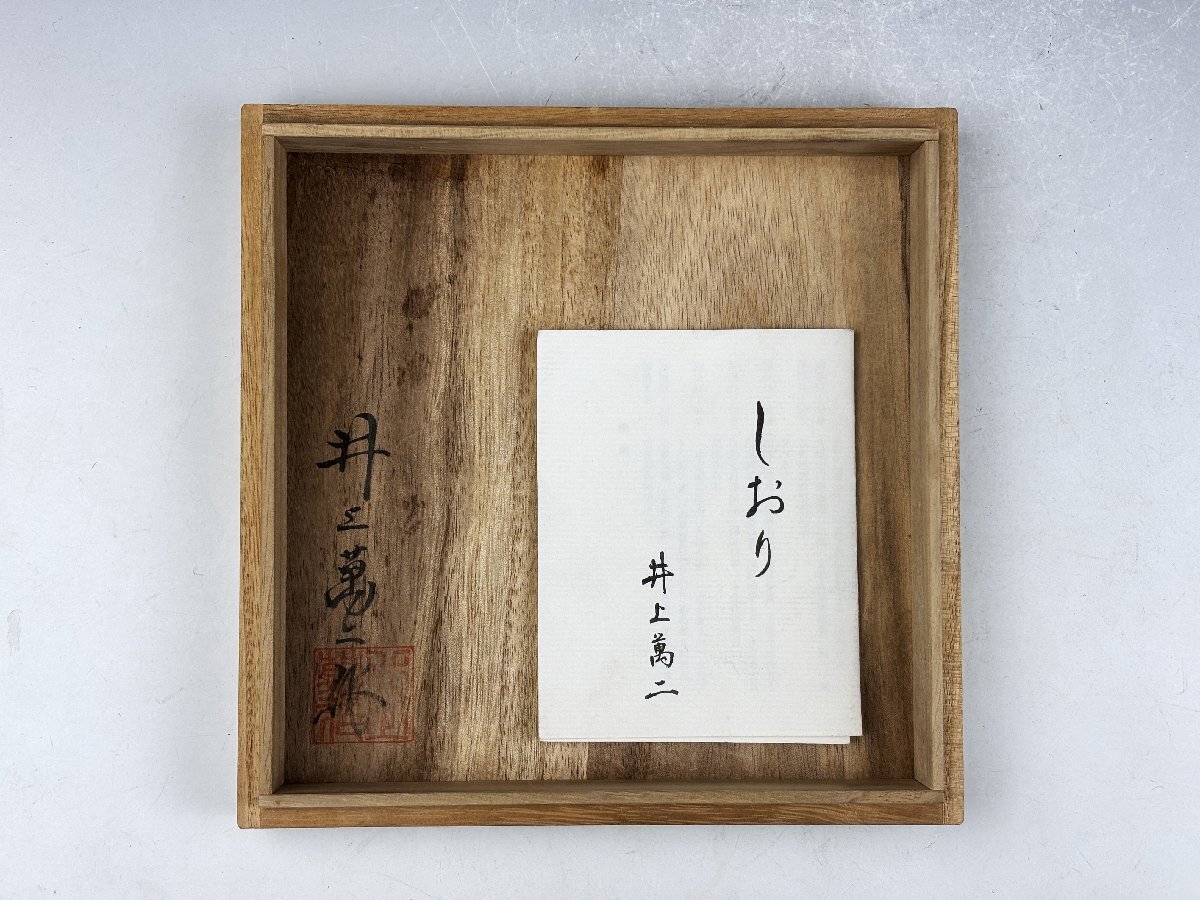 しおり
井上萬二
井上萬二作